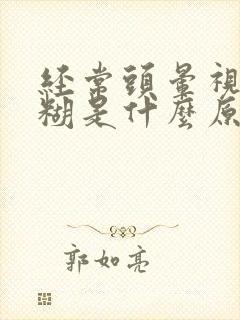 經常頭暈視
糊是什麼原
郭如亮